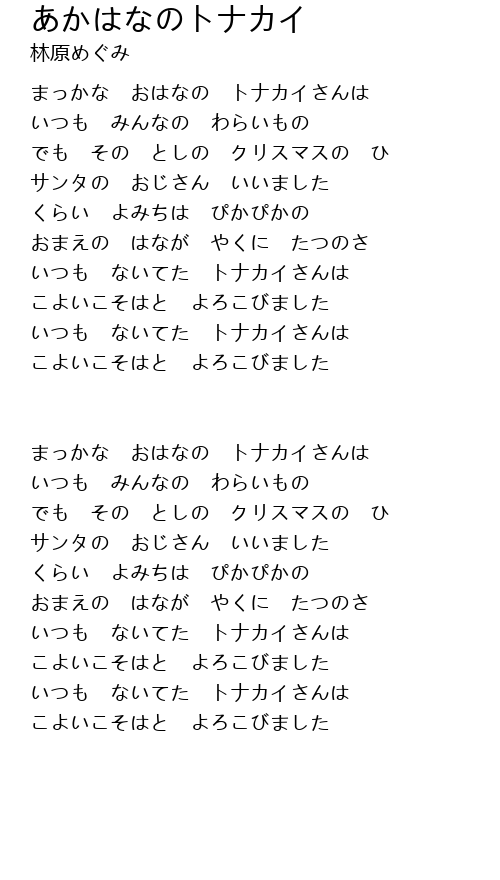 あかはなのトナカイ
林原めぐみ
まっかな　おはなの　トナカイさんは
いつも　みんなの　わらいもの
でも　その　としの　クリスマスの　ひ
サンタの　おじさん　いいました
くらい　よみちは　ぴかぴかの
おまえの　はなが　やくに　たつのさ
いつも　ないてた　トナカイさんは
こよいこそはと　よろこびました
いつも　ないてた　トナカイさんは
こよいこそはと　よろこびました
まっかな　おはなの　トナカイさんは
いつも　みんなの　わらいもの
でも　その　としの　クリスマスの　ひ
サンタの　おじさん　いいました
くらい　よみちは　ぴかぴかの
おまえの　はなが　やくに　たつのさ
いつも　ないてた　トナカイさんは
こよいこそはと　よろこびました
いつも　ないてた　トナカイさんは
こよいこそはと　よろこびました